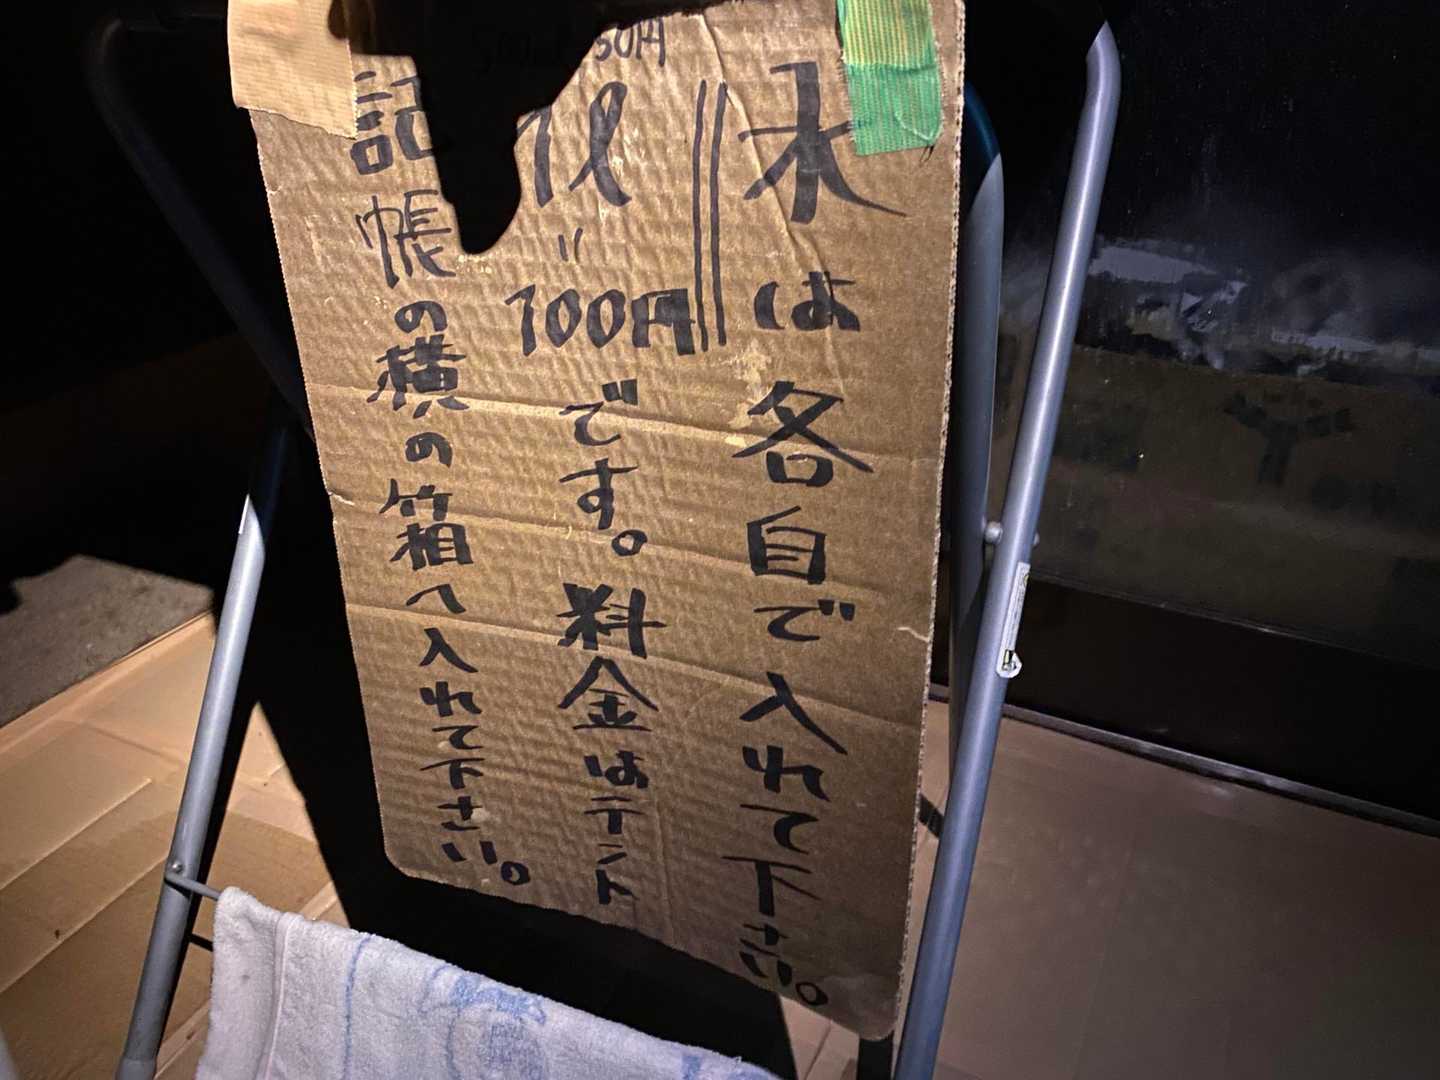 水は各自で入れて下さい。
1ℓ=100円です。料金はテント
記帳の横の箱へ入れて下さい。
50円